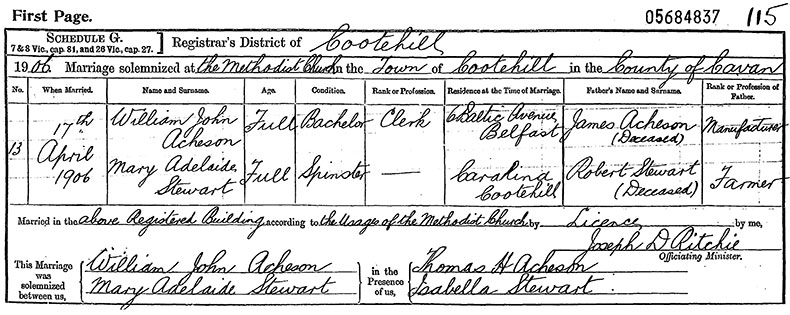 First Page. 05684837 115
SCHEDULE G.
7 & 8 Vic., cap. 81, and 26 Vic., cap. 27.
Registrar's District of Cootehill
1906. Marriage solemnized at the Methodist Church in the Town of Cootehill in the County of Cavan
No. When Married. Name and Surname. Age. Condition. Rank or Profession. Residence at the Time of Marriage. Father's Name and Surname. Rank or Profession of Father.
13 17th April 1906
William John Acheson Full Bachelor Clerk 6 Baltic Avenue, Belfast James Acheson (Deceased) Manufacturer
Mary Adelaide Stewart Full Spinster — Coralina Cootehill Robert Stewart (Deceased) Farmer
Married in the above Registered Building according to the Usages of the Methodist Church by Licence by me,
Joseph D Ritchie
Officiating Minister.
This Marriage was solemnized between us,
William John Acheson
Mary Adelaide Stewart
in the Presence of us,
Thomas H Acheson
Isabella Stewart